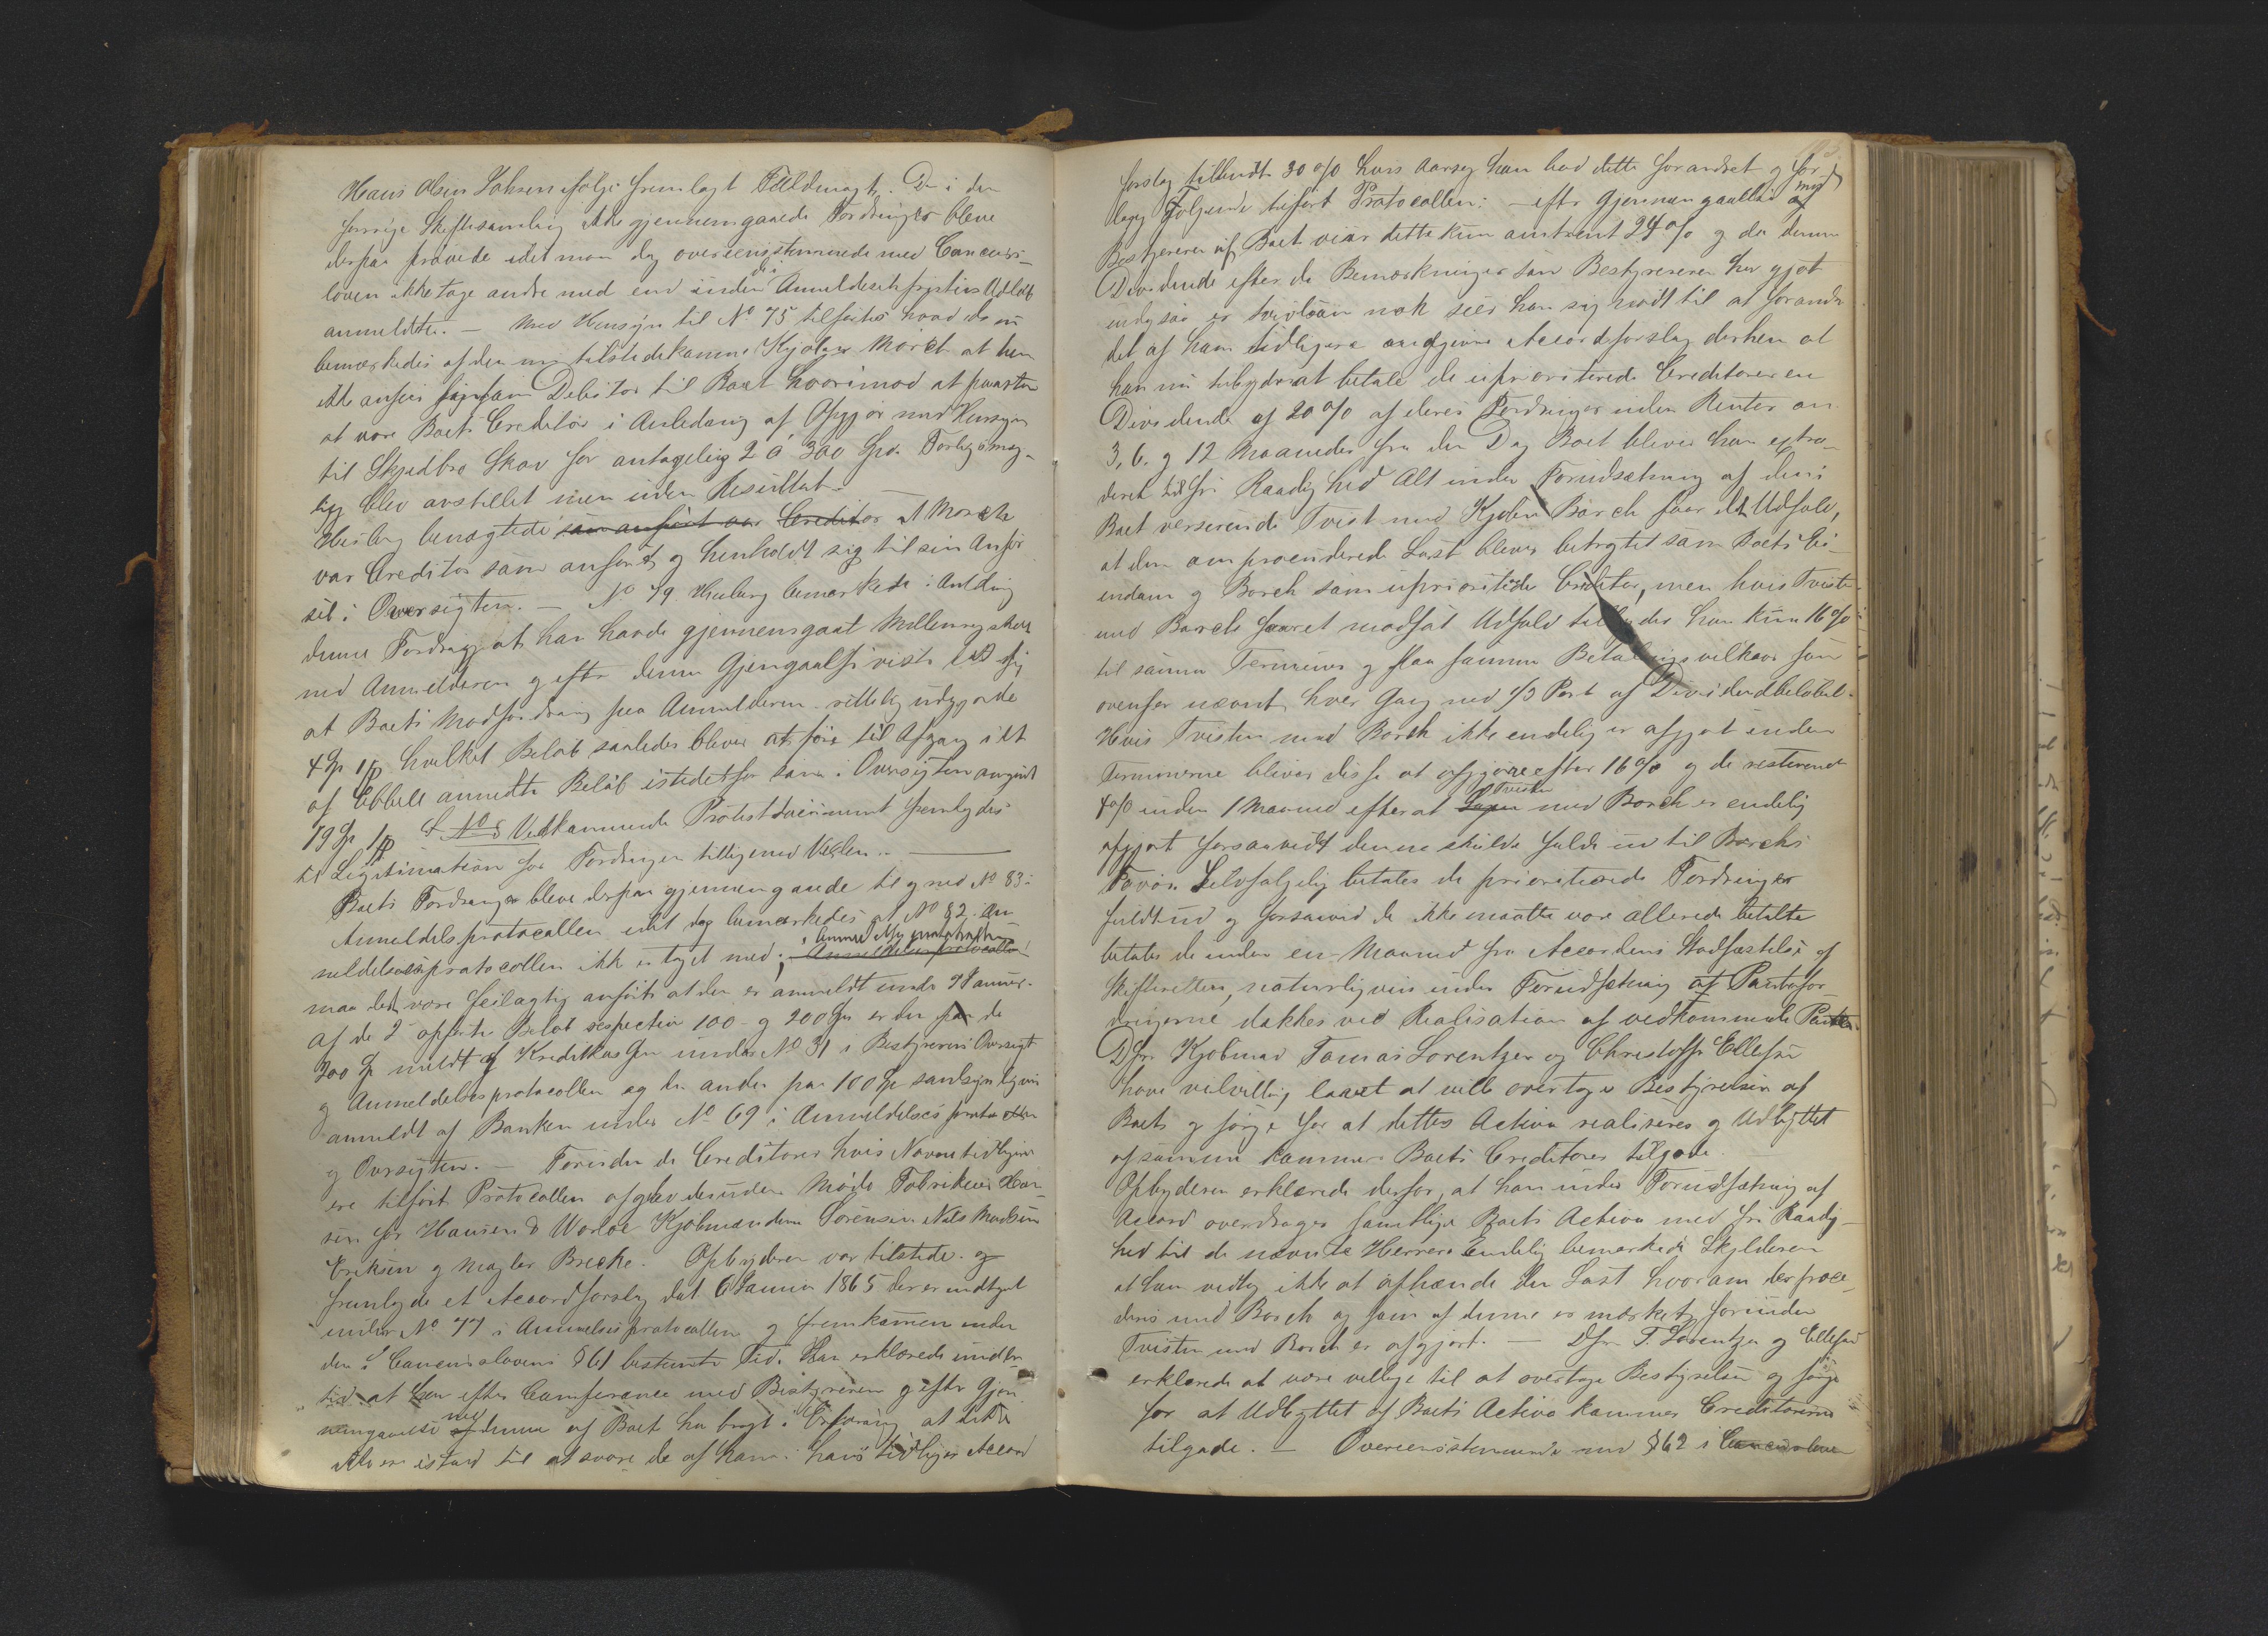 Hans Olsen Johsen ifølge fremlagt Fuldmagt. De i den
forrige Skiftesamling ikke gjennemgaaede Fordringer bleve
derpaa prøvede idet man dog overeensstemmende med Concurs-
loven ikke tage andre med end inden Anmeldelsesfristens Udløb
anmeldte. — Med Hensyn til No 75 tilføies hvad
bemærkedes af den nu tilstedekomne Morch at han
ikke ansees som Debitor til Boet hvorimod at paastaa
at være Boets Creditor i Anledning af Opgjør med Hensyn
til Skjedbro Skov for antagelig 2 à 300 Spd. Forligsmæg-
ling blev anstillet men uden Resultat. —
Heiberg benægtede som anført var Creditor at Morch
var Creditor som anført og henholdt sig til sin Anfør
sel i Oversigten. — No 79 Heiberg bemærkede i Anledning
denne Fordring at han havde gjennemgaaet Mellemregnskab
med Anmelderen og efter denne Gjengaaelse viste det sig
at Boets Modfordring paa Anmelderen rettelig udgjorde
4 Sp 1 hvilket Beløb saaledes bliver at føre til Afgang i det
af Ebbell anmeldte Beløb istedetfor som i Oversigten angivet
19 Sp 1 Vedkommende Protestdocument fremlagdes
til Legitimation for Fordringen tilligemed Vexlen. —
Boets Fordringer bleve derpaa gjennemgaaede til og med No 83 i
Anmeldelsprotocollen idet dog bemærkedes at No 82 An
meldelsesprotocollen ikke er taget med; i Anmeldelsesprotocollen
maa det være feilagtig anført at den er anmeldt under 9 Januar.
Af de 2 opførte Beløb respective 100 – og 200 Sp er den paa de
200 Sp meldt af Kreditkassen under No 31 i Bestyrerens Oversigt
og Anmeldelsesprotocollen og den anden paa 100 Sp sandsynligviis
anmeldt af Banken under No 69 i Anmeldelsesprotocollen
og Oversigten. — Foruden de Creditorer hvis Navne tidligere
ere tilført Protocollen afgav desuden Møde Fabrikeier Han-
sen for Hansen & Worloe Kjøbmændene Sørensen Nils Madsen
Eriksen og Mægler Brecke. Opbyderen var tilstede og
fremlagde et Accordforslag dat 6 Januar 1865 der er indtaget
under No 77 i Anmeldelsesprotocollen og fremkommen inden
den i Concurslovens § 61 bestemte Tid. Han erklærede imidler
tid at han efter Conferance med Bestyreren og efter Gjen
nemgaaelse med denne af Boet har bragt i Erfaring at dette
ikke er istand til at svare de af ham i hans tidligere Accord
forslag tilbudte 30 % hvis Aarsag han har dette forandret og for-
langt Følgende tilført Protocollen: — efter Gjennemgaaelse med
Bestyreren af Boet viser dette kun omtrent 24 % og da denne
Dividende efter de Bemærkninger som Bestyreren har gjort
endogsaa er tvivlsom nok seer han sig nødt til at forandre
det af ham tidligere angivne Accordsforslag derhen at
han nu tilbyder at betale de uprioriterede Creditorer en
Dividende af 20 % af deres Fordringer uden Renter om
3, 6. og 12 Maaneder fra den Dag Boet bliver ham extra-
deret til fri Raadighed Alt under Forudsætning af den i
Boet verserende Tvist med Kjøbm Borch faar det Udfald,
at den omprocederede Last bliver betragtet som Boets Ei-
endom og Borch som uprioriteret Creditor, men hvis Tvisten
med Borch faaer et modsat Udfald tilbyder han kun 16 %
til samme Terminer og paa samme Betalingsvilkaar som
ovenfor nævnt, hver Gang med 1/3 Part af Dividendbeløbet.
Hvis Tvisten med Borch ikke endelig er afgjort inden
Terminerne bliver disse at afgjøre efter 16 % og de resterende
4 % inden 1 Maaned efterat Sagen Tvisten med Borch er endelig
afgjort forsaavidt denne skulde falde ud til Borchs
Favør. Selvfølgelig betales de prioriterede Fordringer
fuldtud og forsaavid de ikke maatte være allerede betalte
betales de inden en Maaned fra Accordens Stadfæstelse af
Skifteretten, naturligviis under Forudsætning af Pantefor-
dringerne dækkes ved Realisation af vedkommende Panter.
D'hr. Kjøbmæd Tomas Lorentzen og Christoffer Ellefsen
have velvillig lovet at ville overtage Bestyrelsen af
Boet og sørge for at dettes Activa realiseres og Udbyttet
af samme kommer Boets Creditorer tilgode.
Opbyderen erklærede derfor, at han under Forudsætning af
Accord overdrager samtlige Boets Activa med fri Raadig-
hed til de nævnte Herrer. Endelig bemærkede Skylderen
at han vedtog ikke at afhænde den Last hvorom der proce-
deres med Borch og som af denne er mærket, forinden
Tvisten med Borch er afgjort. — D'hr. T. Lorentzen og Ellefsen
erklærede at være villige til at overtage Bestyrelsen og sørge
for at Udbyttet af Boets Activa kommer Creditorerne
tilgode. — Overeensstemmende med § 62 i Concursloven